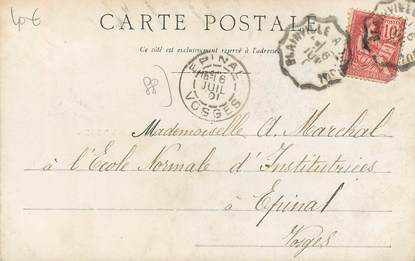 40€
CARTE POSTALE
Ce côté est exclusivement réservé à l'adresse
BLAINVILLE A
10
EPINAL
6
JUIL
01
VOSGES
88
Mademoiselle A. Marchal
à l'École Normale d'Institutrices
à Epinal
Vosges